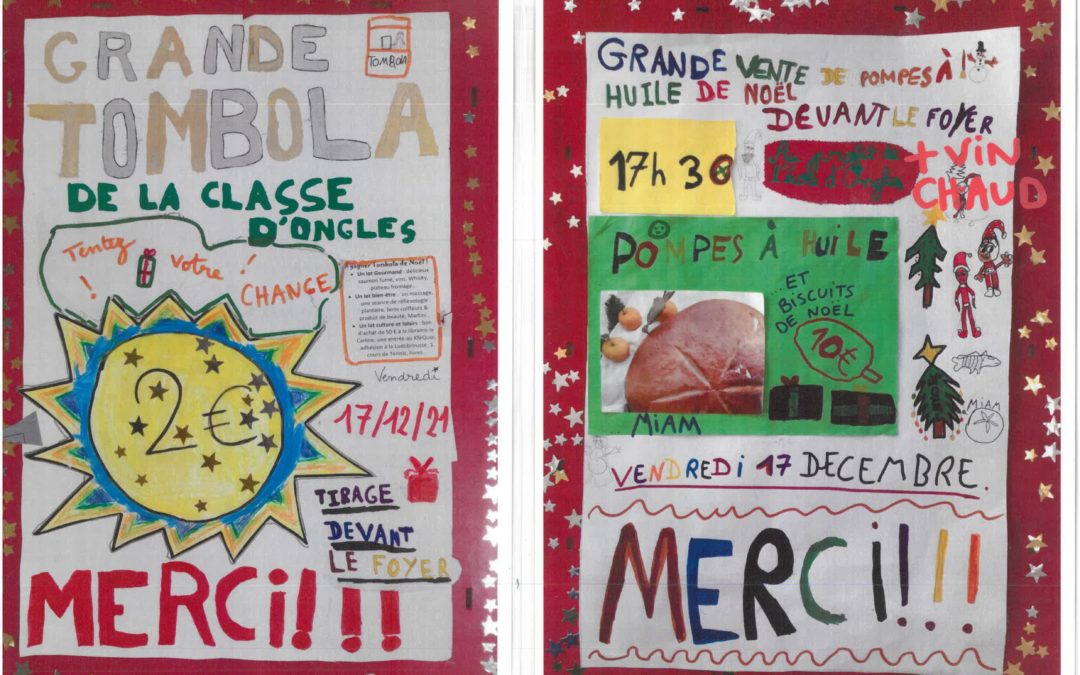 GRANDE
TOMBOLA
TOMBOLA
DE LA CLASSE
D'ONGLES
Tentez votre !
! CHANCE
gagner Tombola de Noël !
• Un lot Gourmand : délicieux
saumon fumé, vins, Whisky,
plateau fromage..
• Un lot bien-être : un massage,
une séance de réflexologie
plantaire, bons coiffeurs &
produit de beauté, Martini..
• Un lot culture et loisirs : bon
d'achat de 50 € à la librairie la
Carline, une entrée au
adhésion à la Ludobrousse, 1
cours de Tennis, livres..
Vendredi
17/12/21
2€
TIRAGE
DEVANT
LE FOYER
MERCi!!!
GRANDE VENTE DE POMPES À
HUILE DE NOËL
DEVANT LE FOYER
17h 30
+ ViN
CHAUD
POMPES À HUILE
... ET
BISCUITS
DE NOËL
10€
MiAM
MiAM
VENDREDI 17 DECEMBRE.
MERCi!!!!